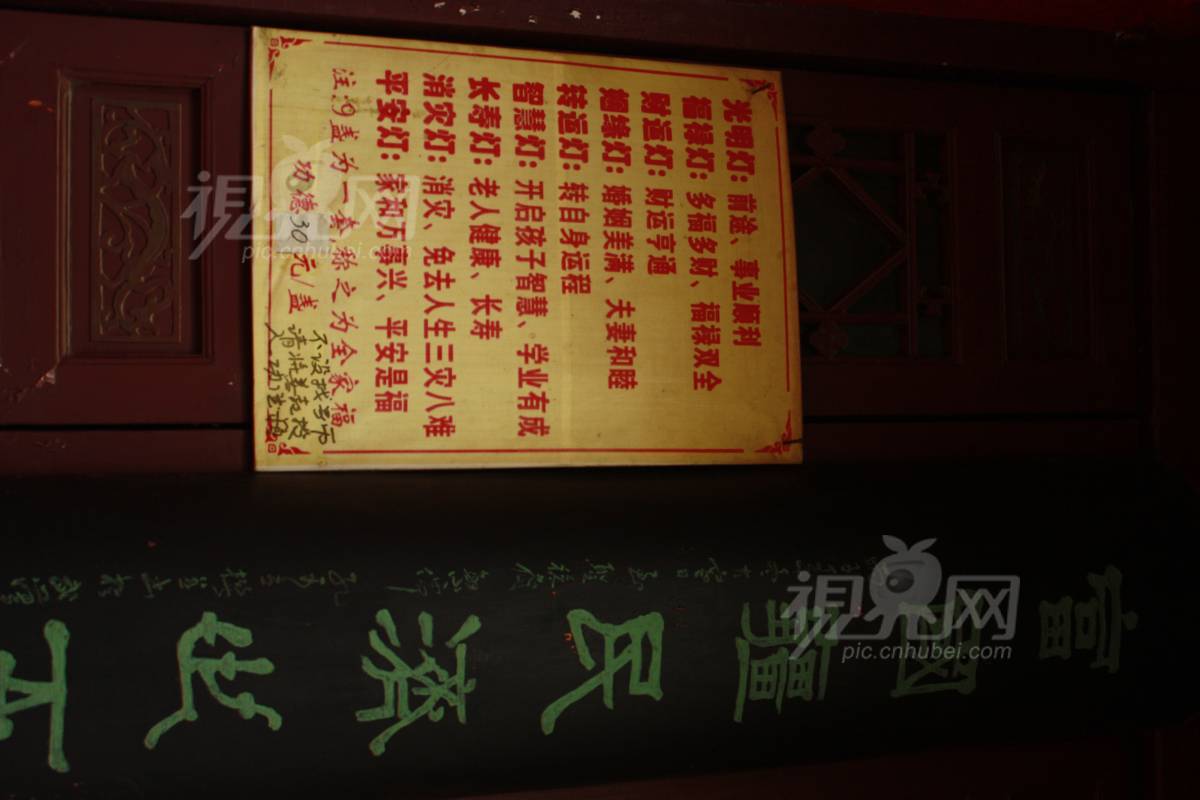 光明灯：前途、事业顺利
福禄灯：多福多财、福禄双全
财运灯：财运亨通
姻缘灯：婚姻美满、夫妻和睦
转运灯：转自身运程
智慧灯：开启孩子智慧、学业有成
长寿灯：老人健康、长寿
消灾灯：消灾、免去人生三灾八难
平安灯：家和万事兴、平安是福
注：9盏为一套称之为全家福
功德30元/盏
不设找零币
请将善款投
入功德
富國疆民濟世
視界网
pic.cnhubei.com
視界网
pic.cnhubei.com